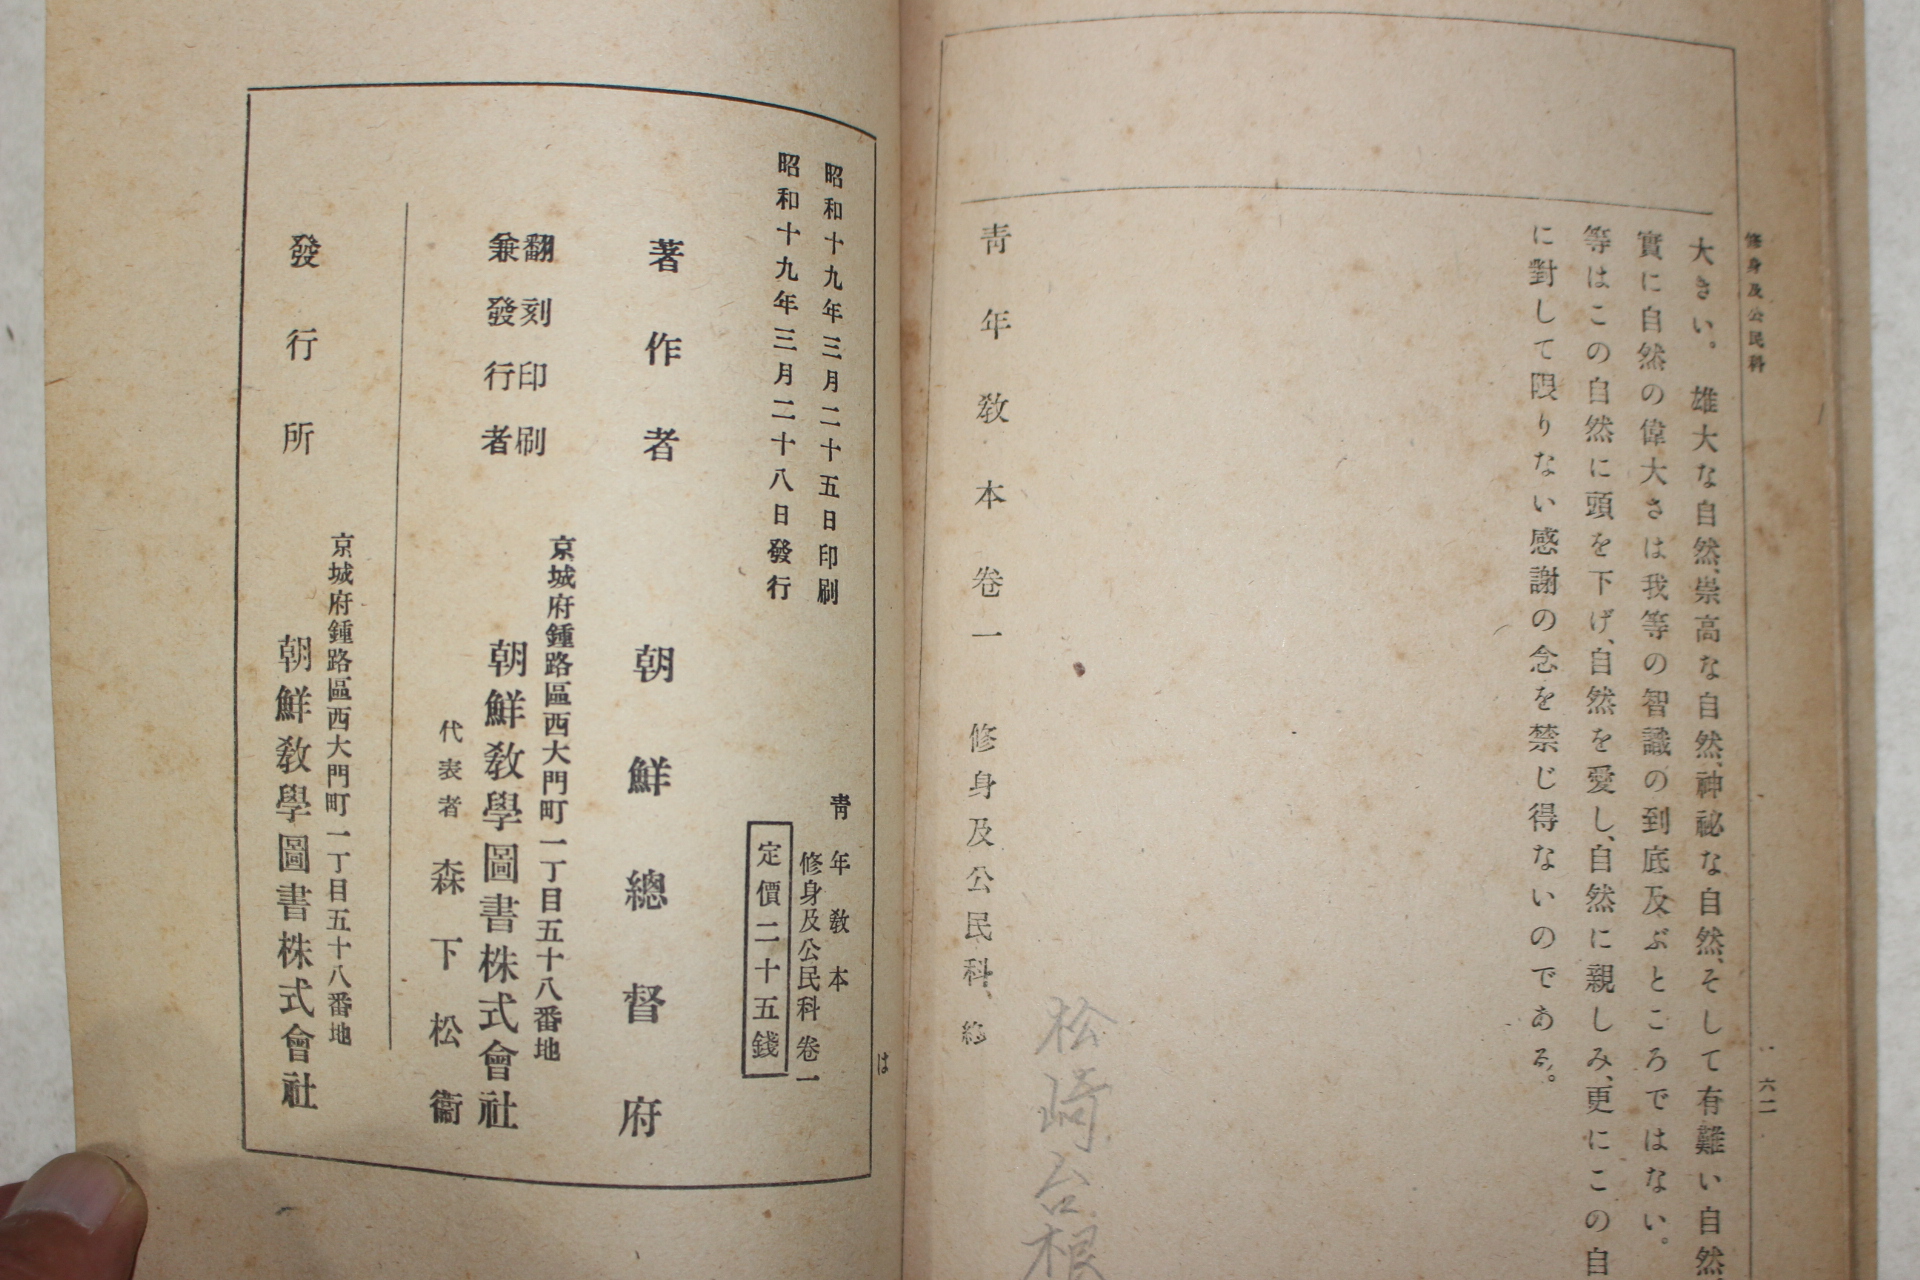 修身及公民科
六二
大きい。雄大な自然、崇高な自然、神祕な自然、そして有難い自然
實に自然の偉大さは我等の智識の到底及ぶところではない。
等はこの自然に頭を下げ、自然を愛し、自然に親しみ、更にこの自
に對して限りない感謝の念を禁じ得ないのである。
松崎台根
青年敎本卷一 修身及公民科、終
は
昭和十九年三月二十五日印刷
昭和十九年三月二十八日發行
青年敎本
修身及公民科卷一
定價二十五錢
著作者 朝鮮總督府
翻刻印刷
兼發行者
京城府鍾路區西大門町一丁目五十八番地
朝鮮敎學圖書株式會社
代表者 森下松衞
京城府鍾路區西大門町一丁目五十八番地
發行所 朝鮮敎學圖書株式會社